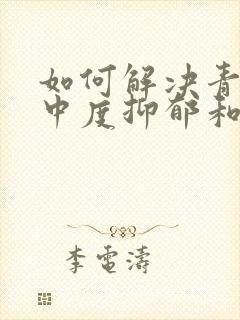 如何解决青
中度抑郁和
李电涛